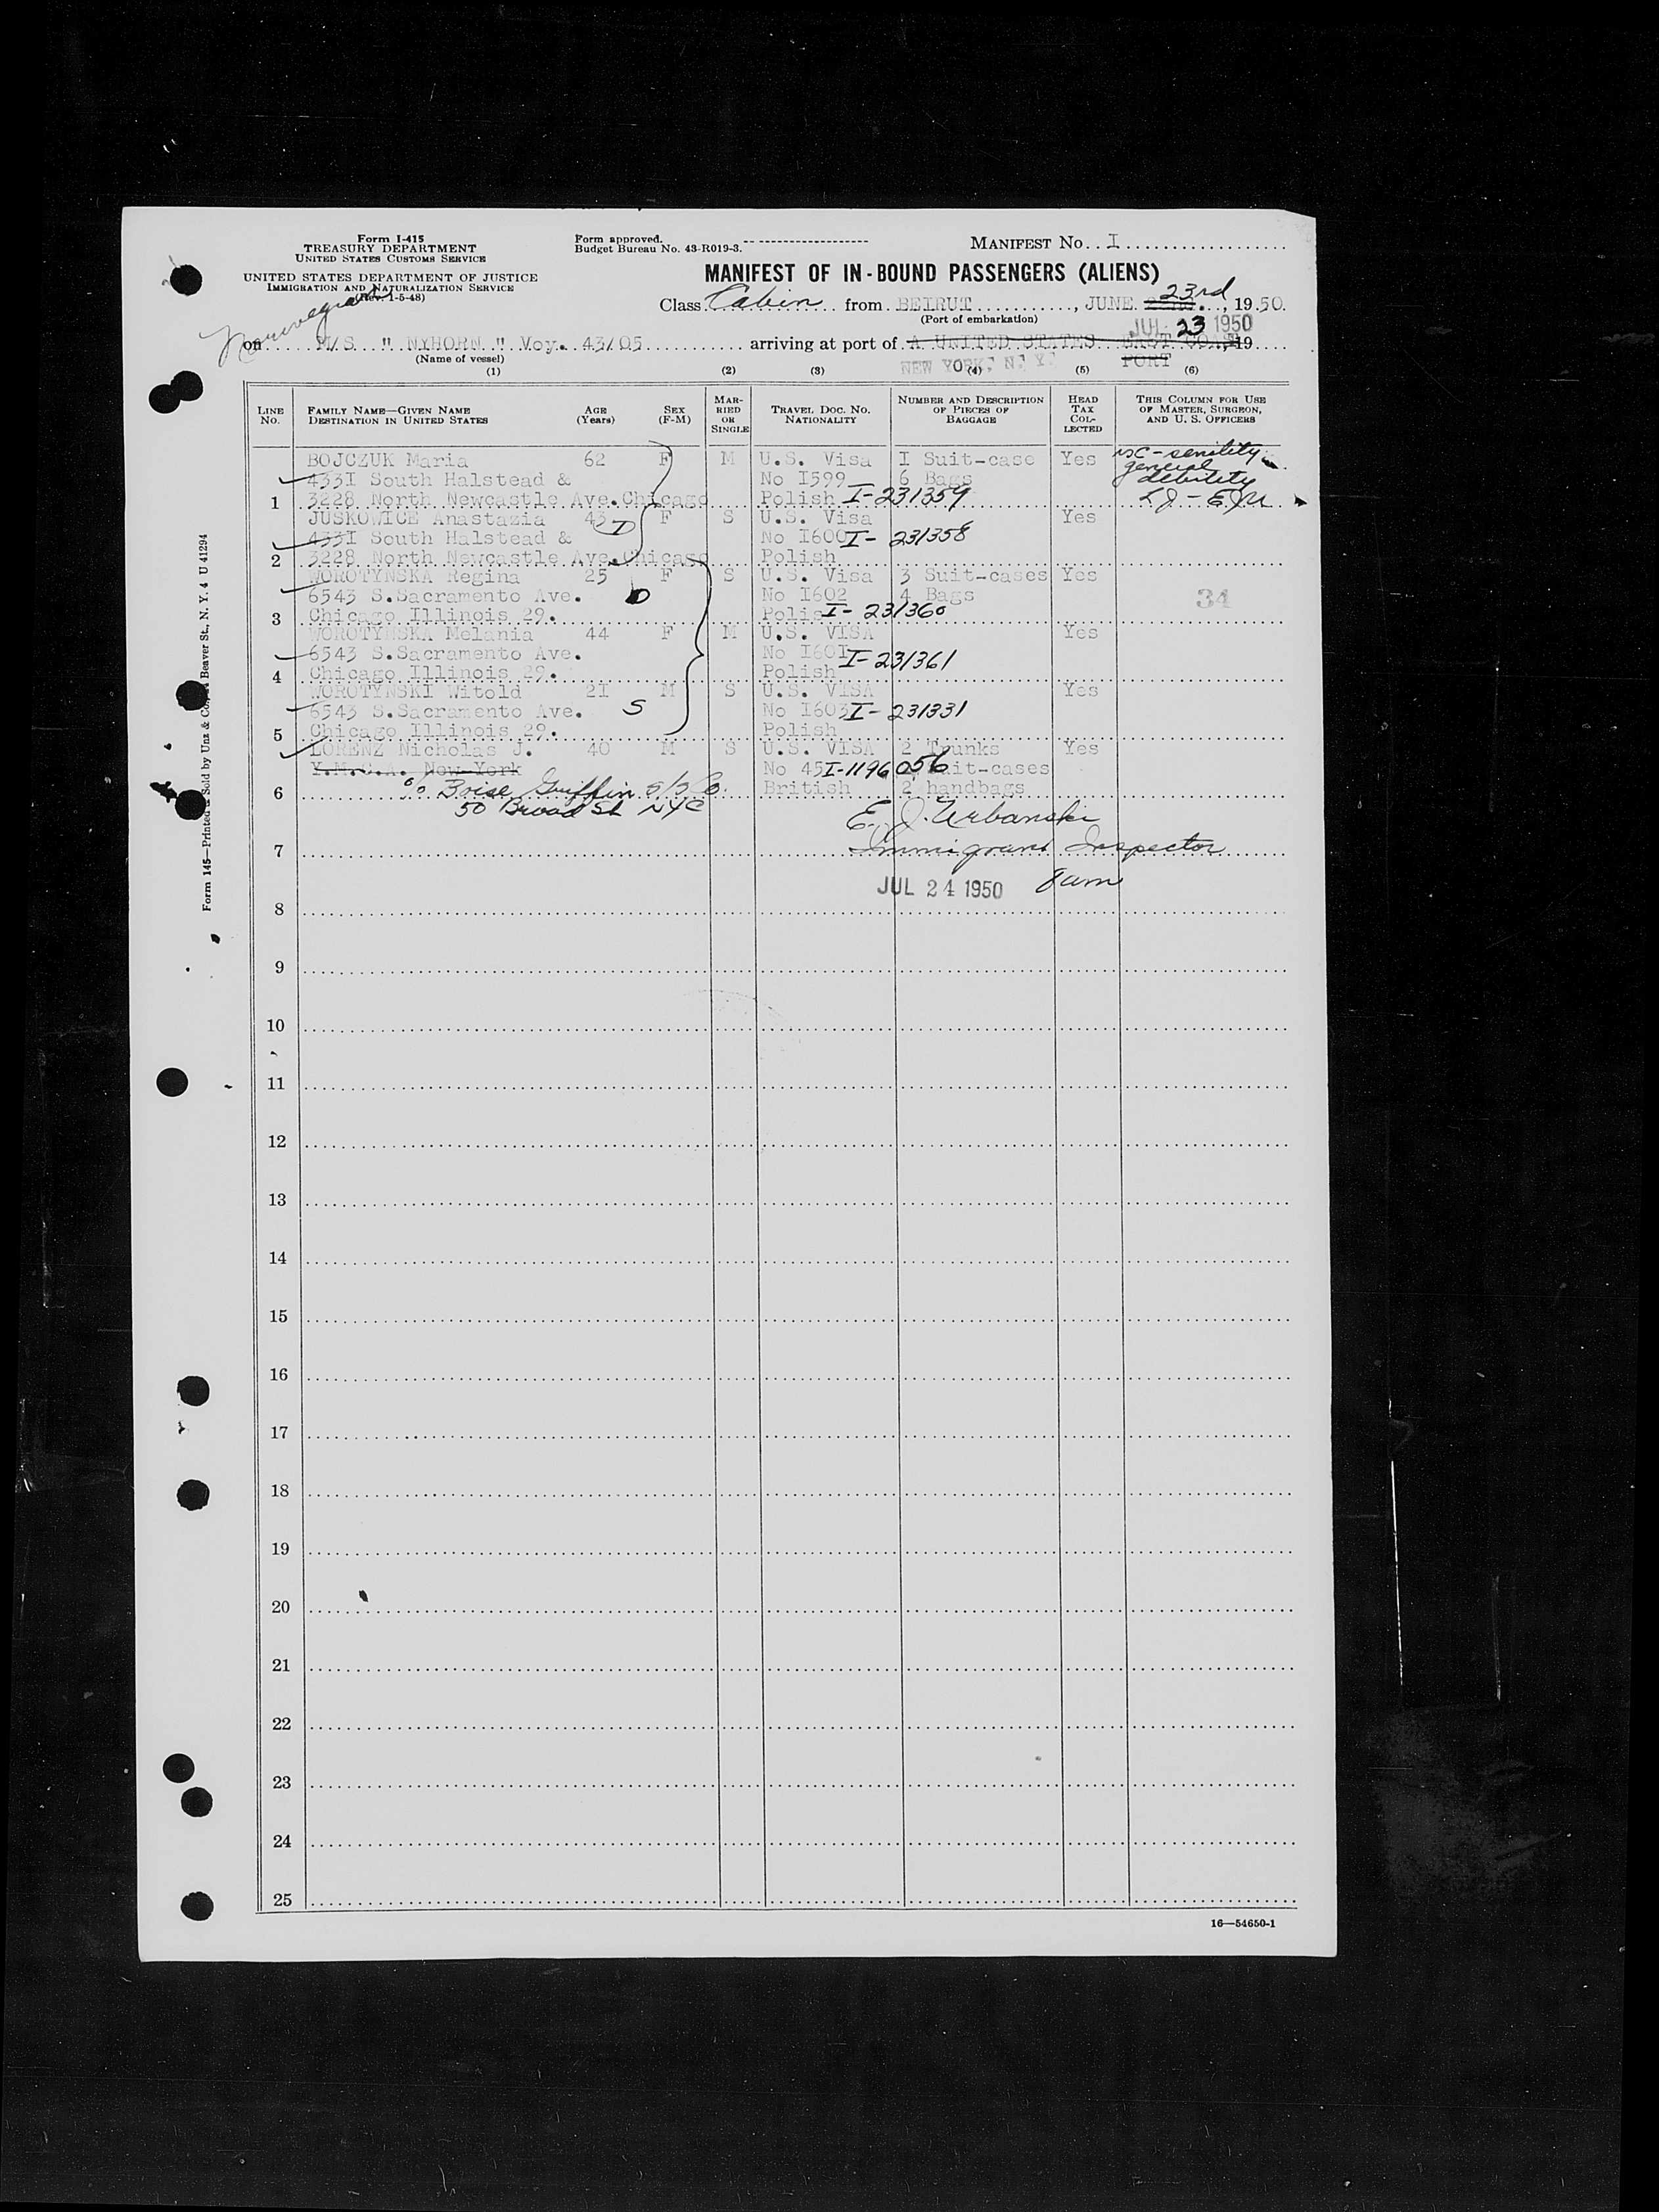 Form I-415
TREASURY DEPARTMENT
UNITED STATES CUSTOMS SERVICE
UNITED STATES DEPARTMENT OF JUSTICE
IMMIGRATION AND NATURALIZATION SERVICE
(Rev. 1-5-48)
Form approved.
Budget Bureau No. 43-R019-3.
MANIFEST No. I
MANIFEST OF IN-BOUND PASSENGERS (ALIENS)
Class Cabin from BEIRUT, JUNE 23rd, 1950.
(Port of embarkation)
Norwegian
JUL 23 1950
on M/S " NYHORN " Voy. 43/05 arriving at port of A UNITED STATES EAST COAST 19
(Name of vessel)
NEW YORK, N. Y. PORT
(1) (2) (3) (4) (5) (6)
LINE No. FAMILY NAME—GIVEN NAME DESTINATION IN UNITED STATES AGE (Years) SEX (F-M) MARRIED OR SINGLE TRAVEL DOC. NO. NATIONALITY NUMBER AND DESCRIPTION OF PIECES OF BAGGAGE HEAD TAX COLLECTED THIS COLUMN FOR USE OF MASTER, SURGEON, AND U. S. OFFICERS
BOJCZUK Maria 62 F M U.S. Visa I Suit-case Yes senility
4331 South Halstead & No I599 6 Bags general debility
1 3228 North Newcastle Ave.Chicago Polish I-231359
JUSKOWICE Anastazia 43 F S U.S. Visa Yes
433I South Halstead & D No I600 I-231358
2 3228 North Newcastle Ave.Chicago Polish
WOROTYNSKA Regina 25 F S U.S. Visa 3 Suit-cases Yes
6543 S.Sacramento Ave. D No I602 4 Bags 34
3 Chicago Illinois 29. Polis I-231360
WOROTYNSKA Melania 44 F M U.S. VISA Yes
6543 S.Sacramento Ave. No I60I I-231361
4 Chicago Illinois 29. Polish
WOROTYNSKI Witold 2I M S U.S. VISA Yes
6543 S.Sacramento Ave. S No I603 I-231331
5 Chicago Illinois 29. Polish
LORENZ Nicholas J. 40 M S U.S. VISA 2 Trunks Yes
Y.M.C.A. New York No 45 I-1196056 Suit-cases
6 c/o Boise Griffin S/S Co. British 2 handbags
50 Broad St NYC
E. J. Urbanski
7 Immigrant Inspector
JUL 24 1950 8am
8
9
10
11
12
13
14
15
16
17
18
19
20
21
22
23
24
25
16—54650-1
Form 145—Printed & Sold by Unz & Co., Beaver St., N. Y. 4 U 41294